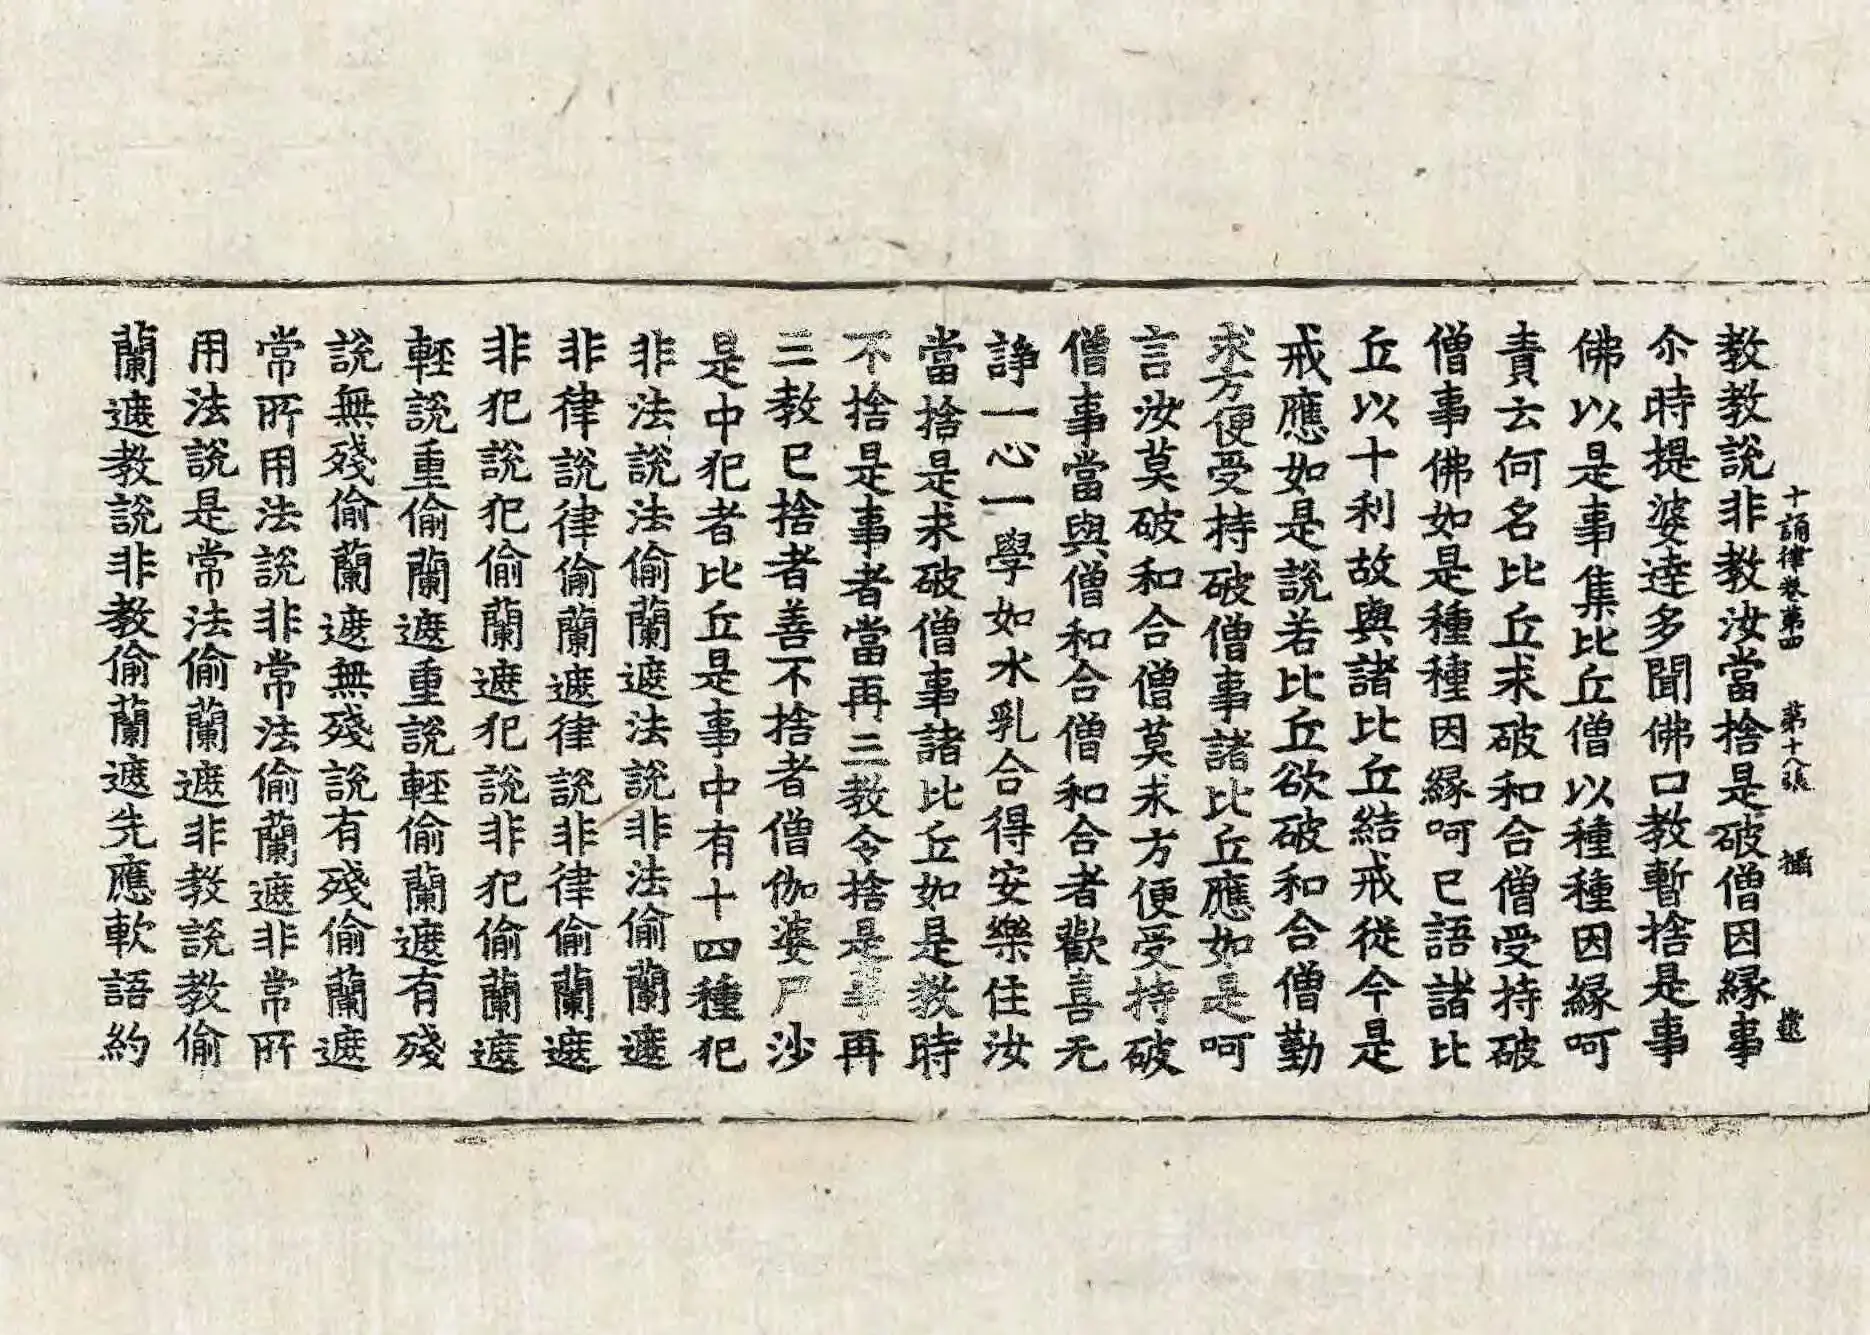 十誦律卷第四 第十八張 攝
教教說非教汝當捨是破僧因緣事
尒時提婆達多聞佛口教暫捨是事
佛以是事集比丘僧以種種因緣呵
責云何名比丘求破和合僧受持破
僧事佛如是種種因緣呵已語諸比
丘以十利故與諸比丘結戒從今是
戒應如是說若比丘欲破和合僧勤
求方便受持破僧事諸比丘應如是呵
言汝莫破和合僧莫求方便受持破
僧事當與僧和合僧和合者歡喜无
諍一心一學如水乳合得安樂住汝
當捨是求破僧事諸比丘如是教時
不捨是事者當再三教令捨是事再
三教已捨者善不捨者僧伽婆尸沙
是中犯者比丘是事中有十四種犯
非法說法偷蘭遮法說非法偷蘭遮
非律說律偷蘭遮律說非律偷蘭遮
非犯說犯偷蘭遮犯說非犯偷蘭遮
輕說重偷蘭遮重說輕偷蘭遮有殘
說無殘偷蘭遮無殘說有殘偷蘭遮
常所用法說非常法偷蘭遮非常所
用法說是常法偷蘭遮非教說教偷
蘭遮教說非教偷蘭遮先應軟語約